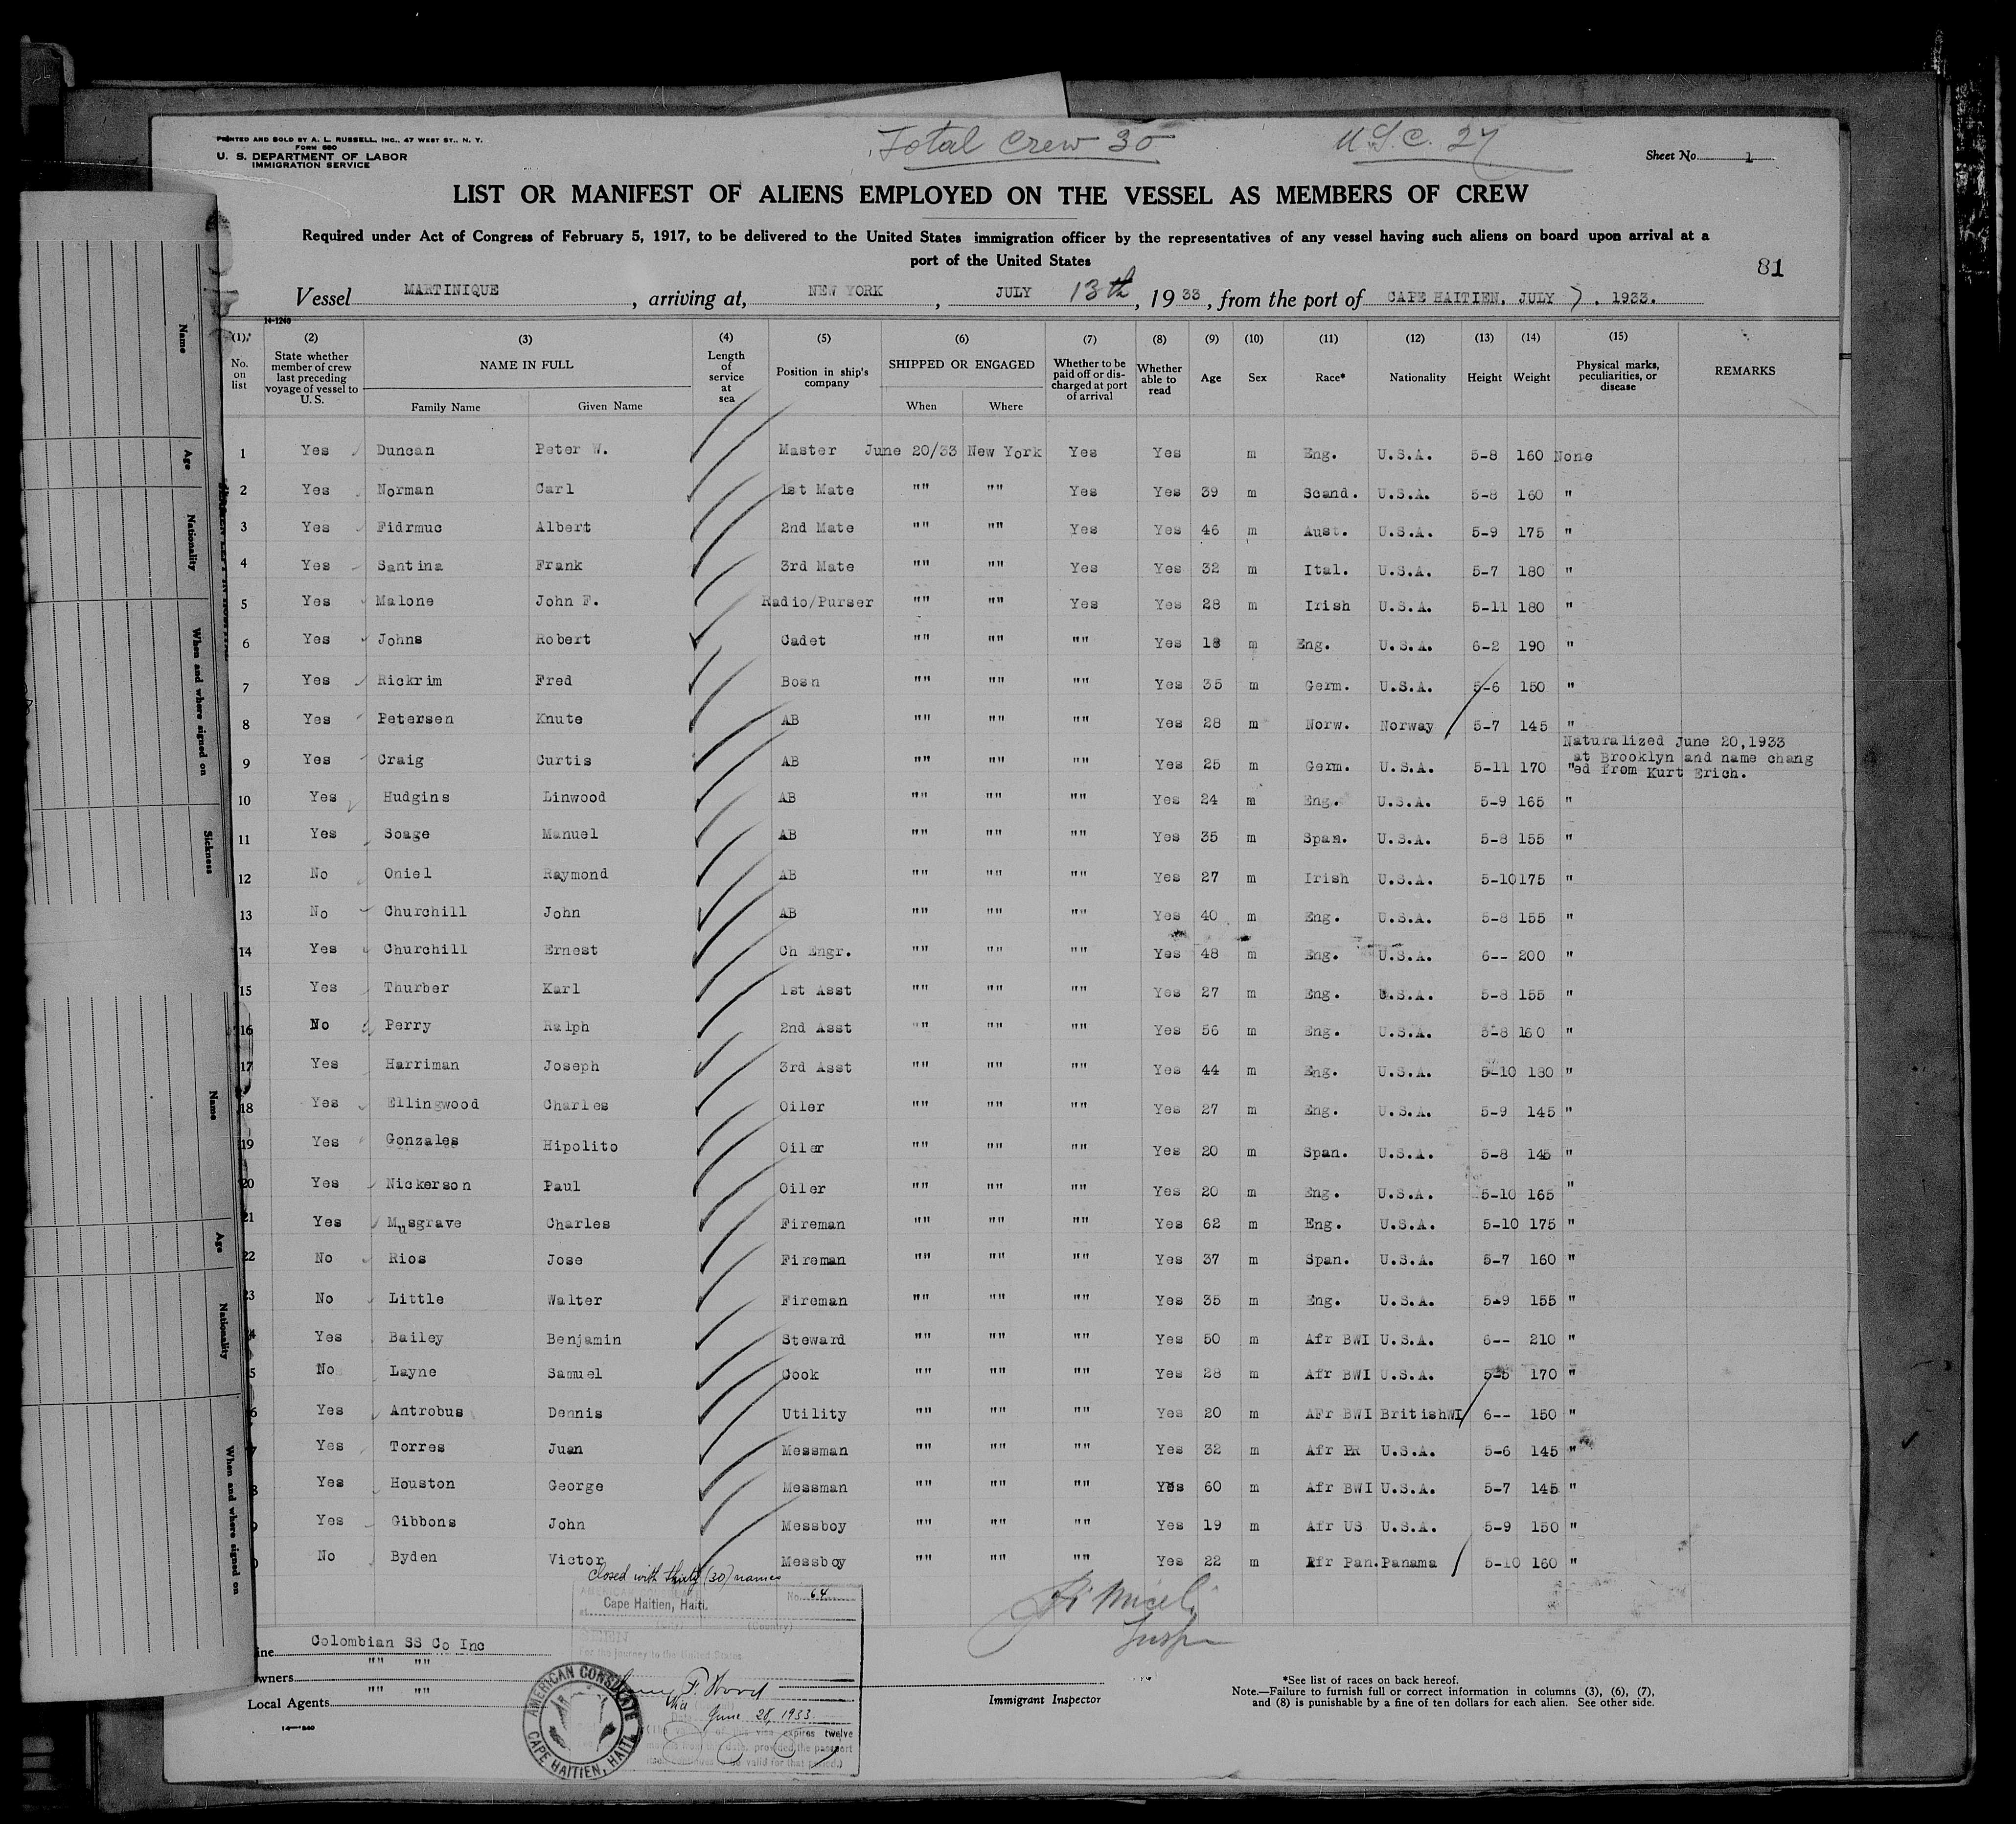 PRINTED AND SOLD BY A. L. RUSSELL, INC., 47 WEST ST., N. Y.
FORM 680
U. S. DEPARTMENT OF LABOR
IMMIGRATION SERVICE
Total Crew 30
U.S.C. 27
Sheet No. 1
LIST OR MANIFEST OF ALIENS EMPLOYED ON THE VESSEL AS MEMBERS OF CREW
Required under Act of Congress of February 5, 1917, to be delivered to the United States immigration officer by the representatives of any vessel having such aliens on board upon arrival at a
port of the United States
81
Vessel MARTINIQUE, arriving at, NEW YORK, JULY 13th, 1933, from the port of CAPE HAITIEN, JULY 7, 1933.
14-1240
(1) (2) (3) (4) (5) (6) (7) (8) (9) (10) (11) (12) (13) (14) (15)
No. on list | State whether member of crew last preceding voyage of vessel to U. S. | NAME IN FULL | Length of service at sea | Position in ship's company | SHIPPED OR ENGAGED | Whether to be paid off or discharged at port of arrival | Whether able to read | Age | Sex | Race* | Nationality | Height | Weight | Physical marks, peculiarities, or disease | REMARKS
Family Name | Given Name | When | Where
1 Yes Duncan Peter W. Master June 20/33 New York Yes Yes m Eng. U.S.A. 5-8 160 None
2 Yes Norman Carl 1st Mate "" "" Yes Yes 39 m Scand. U.S.A. 5-8 160 "
3 Yes Fidrmuc Albert 2nd Mate "" "" Yes Yes 46 m Aust. U.S.A. 5-9 175 "
4 Yes Santina Frank 3rd Mate "" "" Yes Yes 32 m Ital. U.S.A. 5-7 180 "
5 Yes Malone John F. Radio/Purser "" "" Yes Yes 28 m Irish U.S.A. 5-11 180 "
6 Yes Johns Robert Cadet "" "" "" Yes 18 m Eng. U.S.A. 6-2 190 "
7 Yes Rickrim Fred Bosn "" "" "" Yes 35 m Germ. U.S.A. 5-6 150 "
8 Yes Petersen Knute AB "" "" "" Yes 28 m Norw. Norway 5-7 145 "
Naturalized June 20,1933
9 Yes Craig Curtis AB "" "" "" Yes 25 m Germ. U.S.A. 5-11 170 " at Brooklyn and name chang
ed from Kurt Erich.
10 Yes Hudgins Linwood AB "" "" "" Yes 24 m Eng. U.S.A. 5-9 165 "
11 Yes Soage Manuel AB "" "" "" Yes 35 m Span. U.S.A. 5-8 155 "
12 No Oniel Raymond AB "" "" "" Yes 27 m Irish U.S.A. 5-10 175 "
13 No Churchill John AB "" "" "" Yes 40 m Eng. U.S.A. 5-8 155 "
14 Yes Churchill Ernest Ch Engr. "" "" "" Yes 48 m Eng. U.S.A. 6-- 200 "
15 Yes Thurber Karl 1st Asst "" "" "" Yes 27 m Eng. U.S.A. 5-8 155 "
16 No Perry Ralph 2nd Asst "" "" "" Yes 56 m Eng. U.S.A. 5-8 160 "
17 Yes Harriman Joseph 3rd Asst "" "" "" Yes 44 m Eng. U.S.A. 5-10 180 "
18 Yes Ellingwood Charles Oiler "" "" "" Yes 27 m Eng. U.S.A. 5-9 145 "
19 Yes Gonzales Hipolito Oiler "" "" "" Yes 20 m Span. U.S.A. 5-8 145 "
20 Yes Nickerson Paul Oiler "" "" "" Yes 20 m Eng. U.S.A. 5-10 165 "
21 Yes Musgrave Charles Fireman "" "" "" Yes 62 m Eng. U.S.A. 5-10 175 "
22 No Rios Jose Fireman "" "" "" Yes 37 m Span. U.S.A. 5-7 160 "
23 No Little Walter Fireman "" "" "" Yes 35 m Eng. U.S.A. 5-9 155 "
4 Yes Bailey Benjamin Steward "" "" "" Yes 50 m Afr BWI U.S.A. 6-- 210 "
5 No Layne Samuel Cook "" "" "" Yes 28 m Afr BWI U.S.A. 5-5 170 "
6 Yes Antrobus Dennis Utility "" "" "" Yes 20 m AFr BWI BritishWI 6-- 150 "
7 Yes Torres Juan Messman "" "" "" Yes 32 m Afr PR U.S.A. 5-6 145 "
8 Yes Houston George Messman "" "" "" Yes 60 m Afr BWI U.S.A. 5-7 145 "
9 Yes Gibbons John Messboy "" "" "" Yes 19 m Afr US U.S.A. 5-9 150 "
0 No Byden Victor Messboy "" "" "" Yes 22 m Afr Pan. Panama 5-10 160 "
Closed with thirty (30) names
AMERICAN CONSULATE
No. 64
at Cape Haitien, Haiti.
(City) (Country)
SEEN
For the journey to the United States
F. Wood
June 28, 1933
expires twelve
provided the passport
valid for that period.)
AMERICAN CONSULATE
CAPE HAITIEN, HAITI
ine Colombian SS Co Inc
wners "" ""
Local Agents "" ""
14-1240
Insp
Immigrant Inspector
*See list of races on back hereof.
Note.—Failure to furnish full or correct information in columns (3), (6), (7),
and (8) is punishable by a fine of ten dollars for each alien. See other side.
Name
Age
Nationality
When and where signed on
Sickness
Name
Age
Nationality
When and where signed on